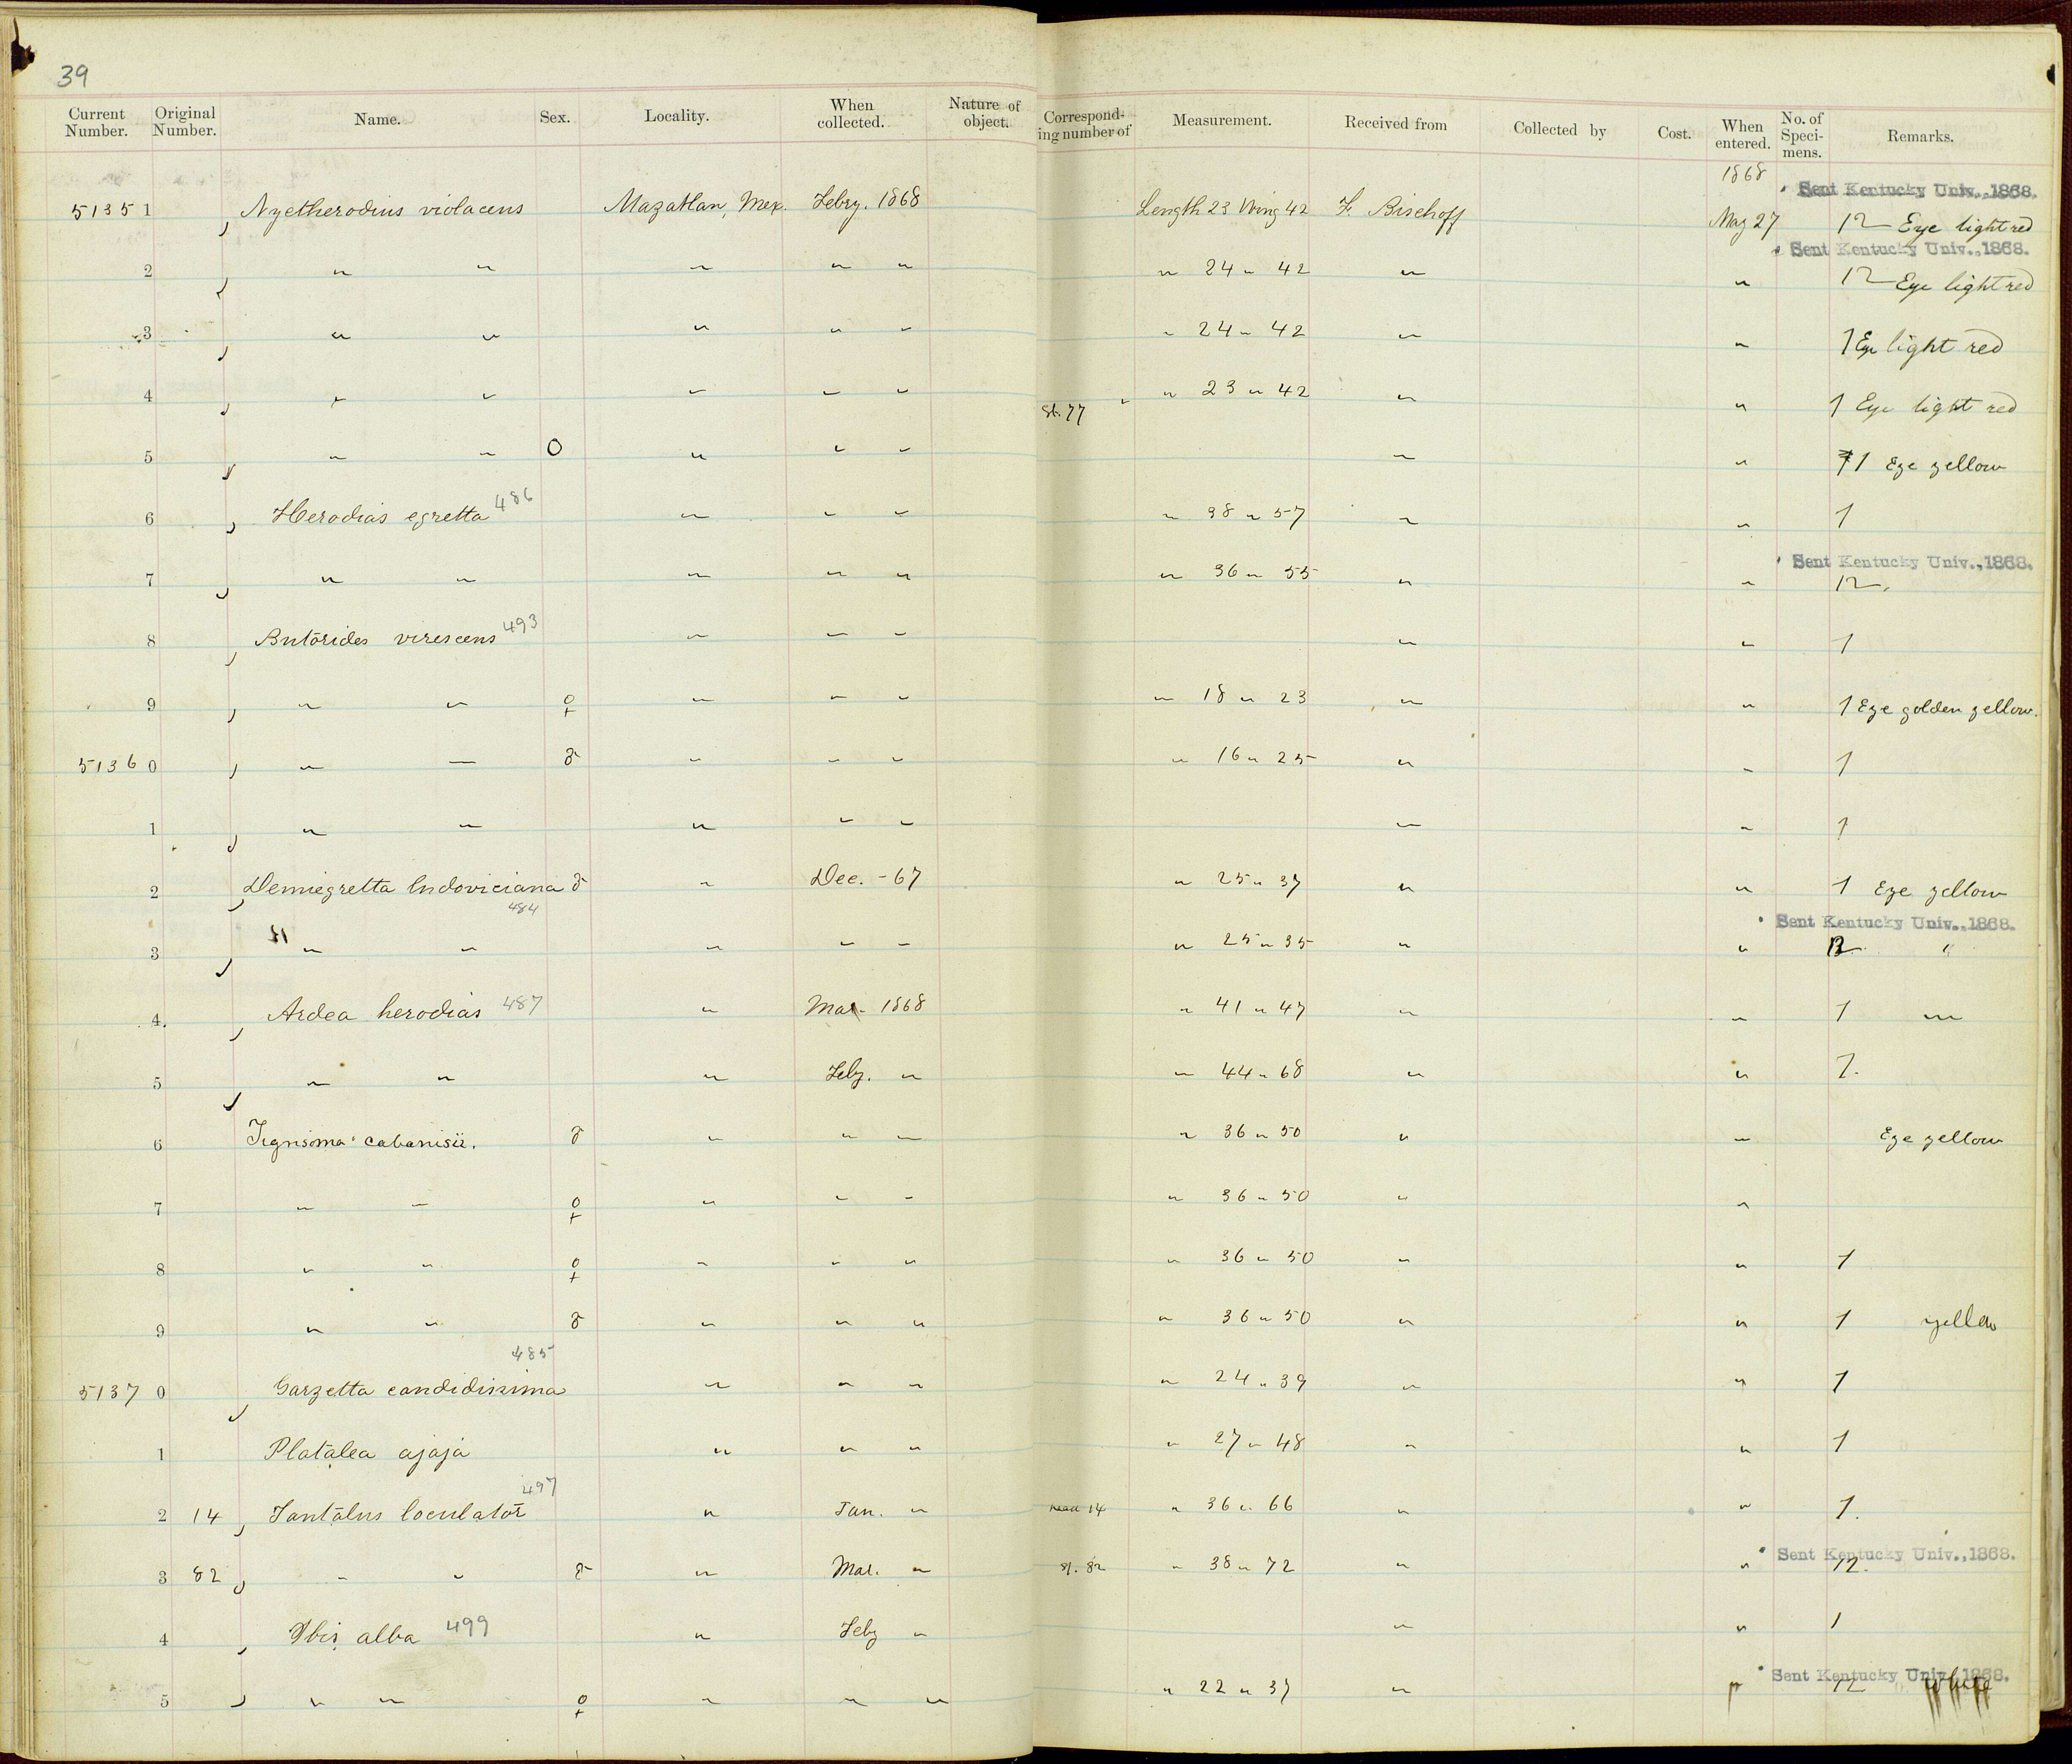 39
Current Number. Original Number. Name. Sex. Locality. When collected. Nature of object. Corresponding number of Measurement. Received from Collected by Cost. When entered. No. of Specimens. Remarks.
1868 Sent Kentucky Univ., 1868.
5135 1 Nyctherodius violaceus Mazatlan, Mex. Feby. 1868 Length 23 Wing 42 F. Bischoff May 27 12 Eye light red
Sent Kentucky Univ., 1868.
2 " " " " " " 24 " 42 " " 12 Eye light red
3 " " " " " " 24 " 42 " " 1 Eye light red
4 " " " " " St. 77 " 23 " 42 " " 1 Eye light red
5 " " O " " " " " 1 Eye yellow
6 Herodias egretta 486 " " " " 38 " 57 " " 1
Sent Kentucky Univ., 1868.
7 " " " " " " 36 " 55 " " 12.
8 Butorides virescens 493 " " " " " 1
9 " " ♀ " " " " 18 " 23 " " 1 Eye golden yellow.
5136 0 " " ♂ " " " " 16 " 25 " " 1
1 " " " " " " " 1
2 Demiegretta ludoviciana ♂ " Dec. - 67 " 25 " 37 " " 1 Eye yellow
484 Sent Kentucky Univ., 1868.
3 " " " " " " 25 " 35 " " 12 "
4. Ardea herodias 487 " Mar. 1868 " 41 " 47 " " 1 "
5 " " " Feby. " " 44 " 68 " " 1.
6 Tigrisoma cabanisii. ♂ " " " " 36 " 50 " " Eye yellow
7 " " ♀ " " " " 36 " 50 " "
8 " " ♀ " " " " 36 " 50 " " 1
9 " " ♂ " " " " 36 " 50 " " 1 yellow
485
5137 0 Garzetta candidissima " " " " 24 " 39 " " 1
1 Platalea ajaja " " " " 27 " 48 " " 1
497
2 14 Tantalus loculator " Jan. " 14 " 36 " 66 " " 1.
Sent Kentucky Univ., 1868.
3 82 " " ♂ " Mar. " 82 " 38 " 72 " " 12.
4 Ibis alba 499 " Feby " " " 1
Sent Kentucky Univ., 1868.
5 " " ♀ " " " " 22 " 37 " " 12 White